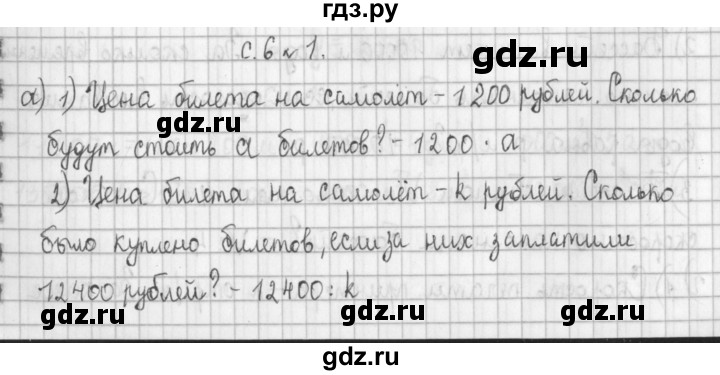 гдз.ру
с. 6 № 1.
а) 1) Цена билета на самолёт – 1200 рублей. Сколько
gdz.ru gdz.ru gdz.ru
будут стоить а билетов? – 1200 · а
2) Цена билета на самолёт – k рублей. Сколько
было куплено билетов, если за них заплатили
12400 рублей? – 12400 : k
gdz.ru gdz.ru gdz.ru
gdz.ru